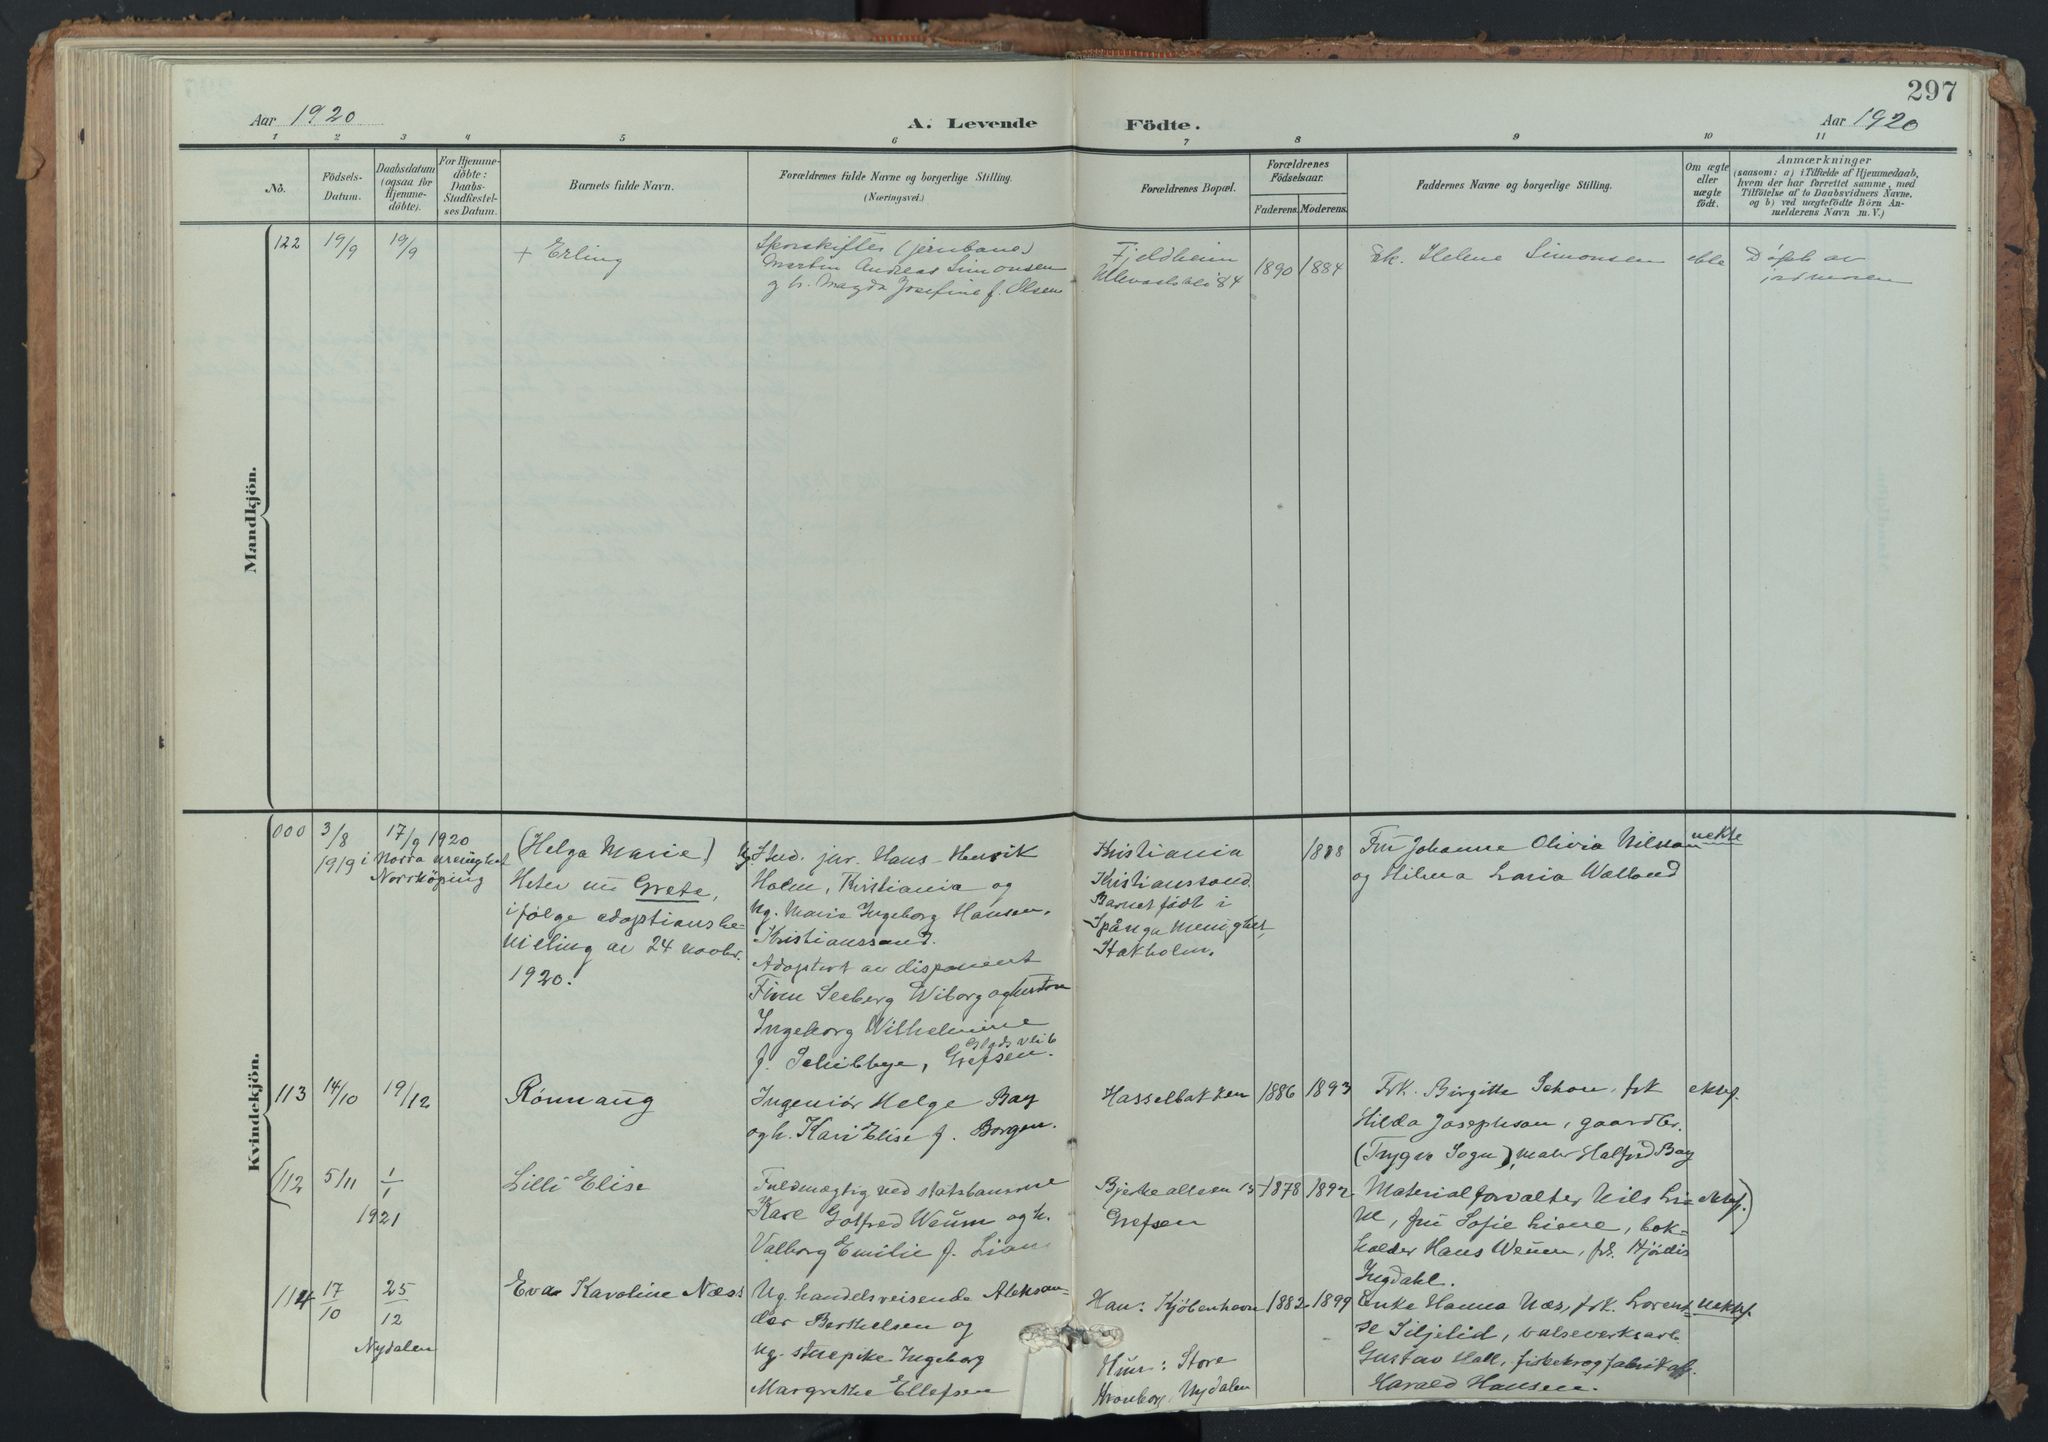 297
Aar 1920
A. Levende Födte.
Aar 1920
1 2 3 4 5 6 7 8 9 10 11
No.
Födsels-
Datum.
Daabsdatum
(ogsaa for
Hjemme-
döbte).
For Hjemme-
döbte:
Daabs-
Stadfæstel-
ses Datum.
Barnets fulde Navn.
Forældrenes fulde Navne og borgerlige Stilling.
(Næringsvei.)
Forældrenes Bopæl.
Forældrenes
Födselsaar.
Faderens. Moderens.
Faddernes Navne og borgerlige Stilling.
Om ægte
eller
uægte
födt.
Anmærkninger
(saasom: a) i Tilfælde af Hjemmedaab,
hvem der har forrettet samme, med
Tilföielse af to Daabsvidners Navne,
og b) ved uægtefödte Börn An-
melderens Navn m. V.)
Mandkjön.
122
19/9
19/9
+ Erling
Sporskifter (jernbane)
Martin Andreas Simonsen
og h. Magda Josefine f. Olsen
Fjeldheim
Ullevaalsvei 84
1890
1884
Frk. Helene Simonsen
ekte
Døpt av
jordmoren
Kvindekjön.
000
3/8
1919
17/9 1920
i Norra menighet
Norrköping
(Helga Marie)
Heter nu Grete,
ifølge adoptionsbe-
villing av 24 novbr.
1920.
Ug. Stud. jur. Hans Henrik
Holm, Kristiania og
Ug. Marie Ingeborg Hansen,
Kristianssand.
Adoptert av disponent
Finn Seeberg Wiborg og hustru
Ingeborg Wilhelmine
f. Schibbye, Grefsen.
Kristiania
Kristianssand.
Barnet født i
Spånga menighet,
Stokholm.
1888
Fru Johanne Olivia Nilsson
og Hilma Maria Walland
uekte
113
14/10
19/12
Rønnaug
Ingeniør Helge Bay
og h. Kari Elise f. Borgen.
Hasselbakken
1886
1893
Frk. Birgitte Schou, frk
Hilda Josephson, gaardbr.
(Trygve Sogn), maler Halfred Bay
ektef.
(112
5/11
1/1
1921
Lilli Elise
Fuldmægtig ved statsbanerne
Karl Gotfred Weum og h.
Valborg Emilie f. Lian
Bjerkealleen 15
Grefsen
1878
1892
Materialforvalter Nils Li-
ll, fru Sofie Liane, bok-
holder Hans Weum, frk. Hjørdis
Ingdahl.
ektef.)
114
17/10
25/12
Nydalen
Eva Karoline Næss
Ug. handelsreisende Aleksan-
der Berthelsen og
Ug. stuepike Ingeborg
Margrethe Ellefsen
Han: Kjøbenhavn
Hun: Store
Kronborg, Nydalen
1882
1899
Enke Hanna Næs, frk. Lorent-
se Siljelid, valseverksarb.
Gustav Hall,
Harald Hansen.
uektef.